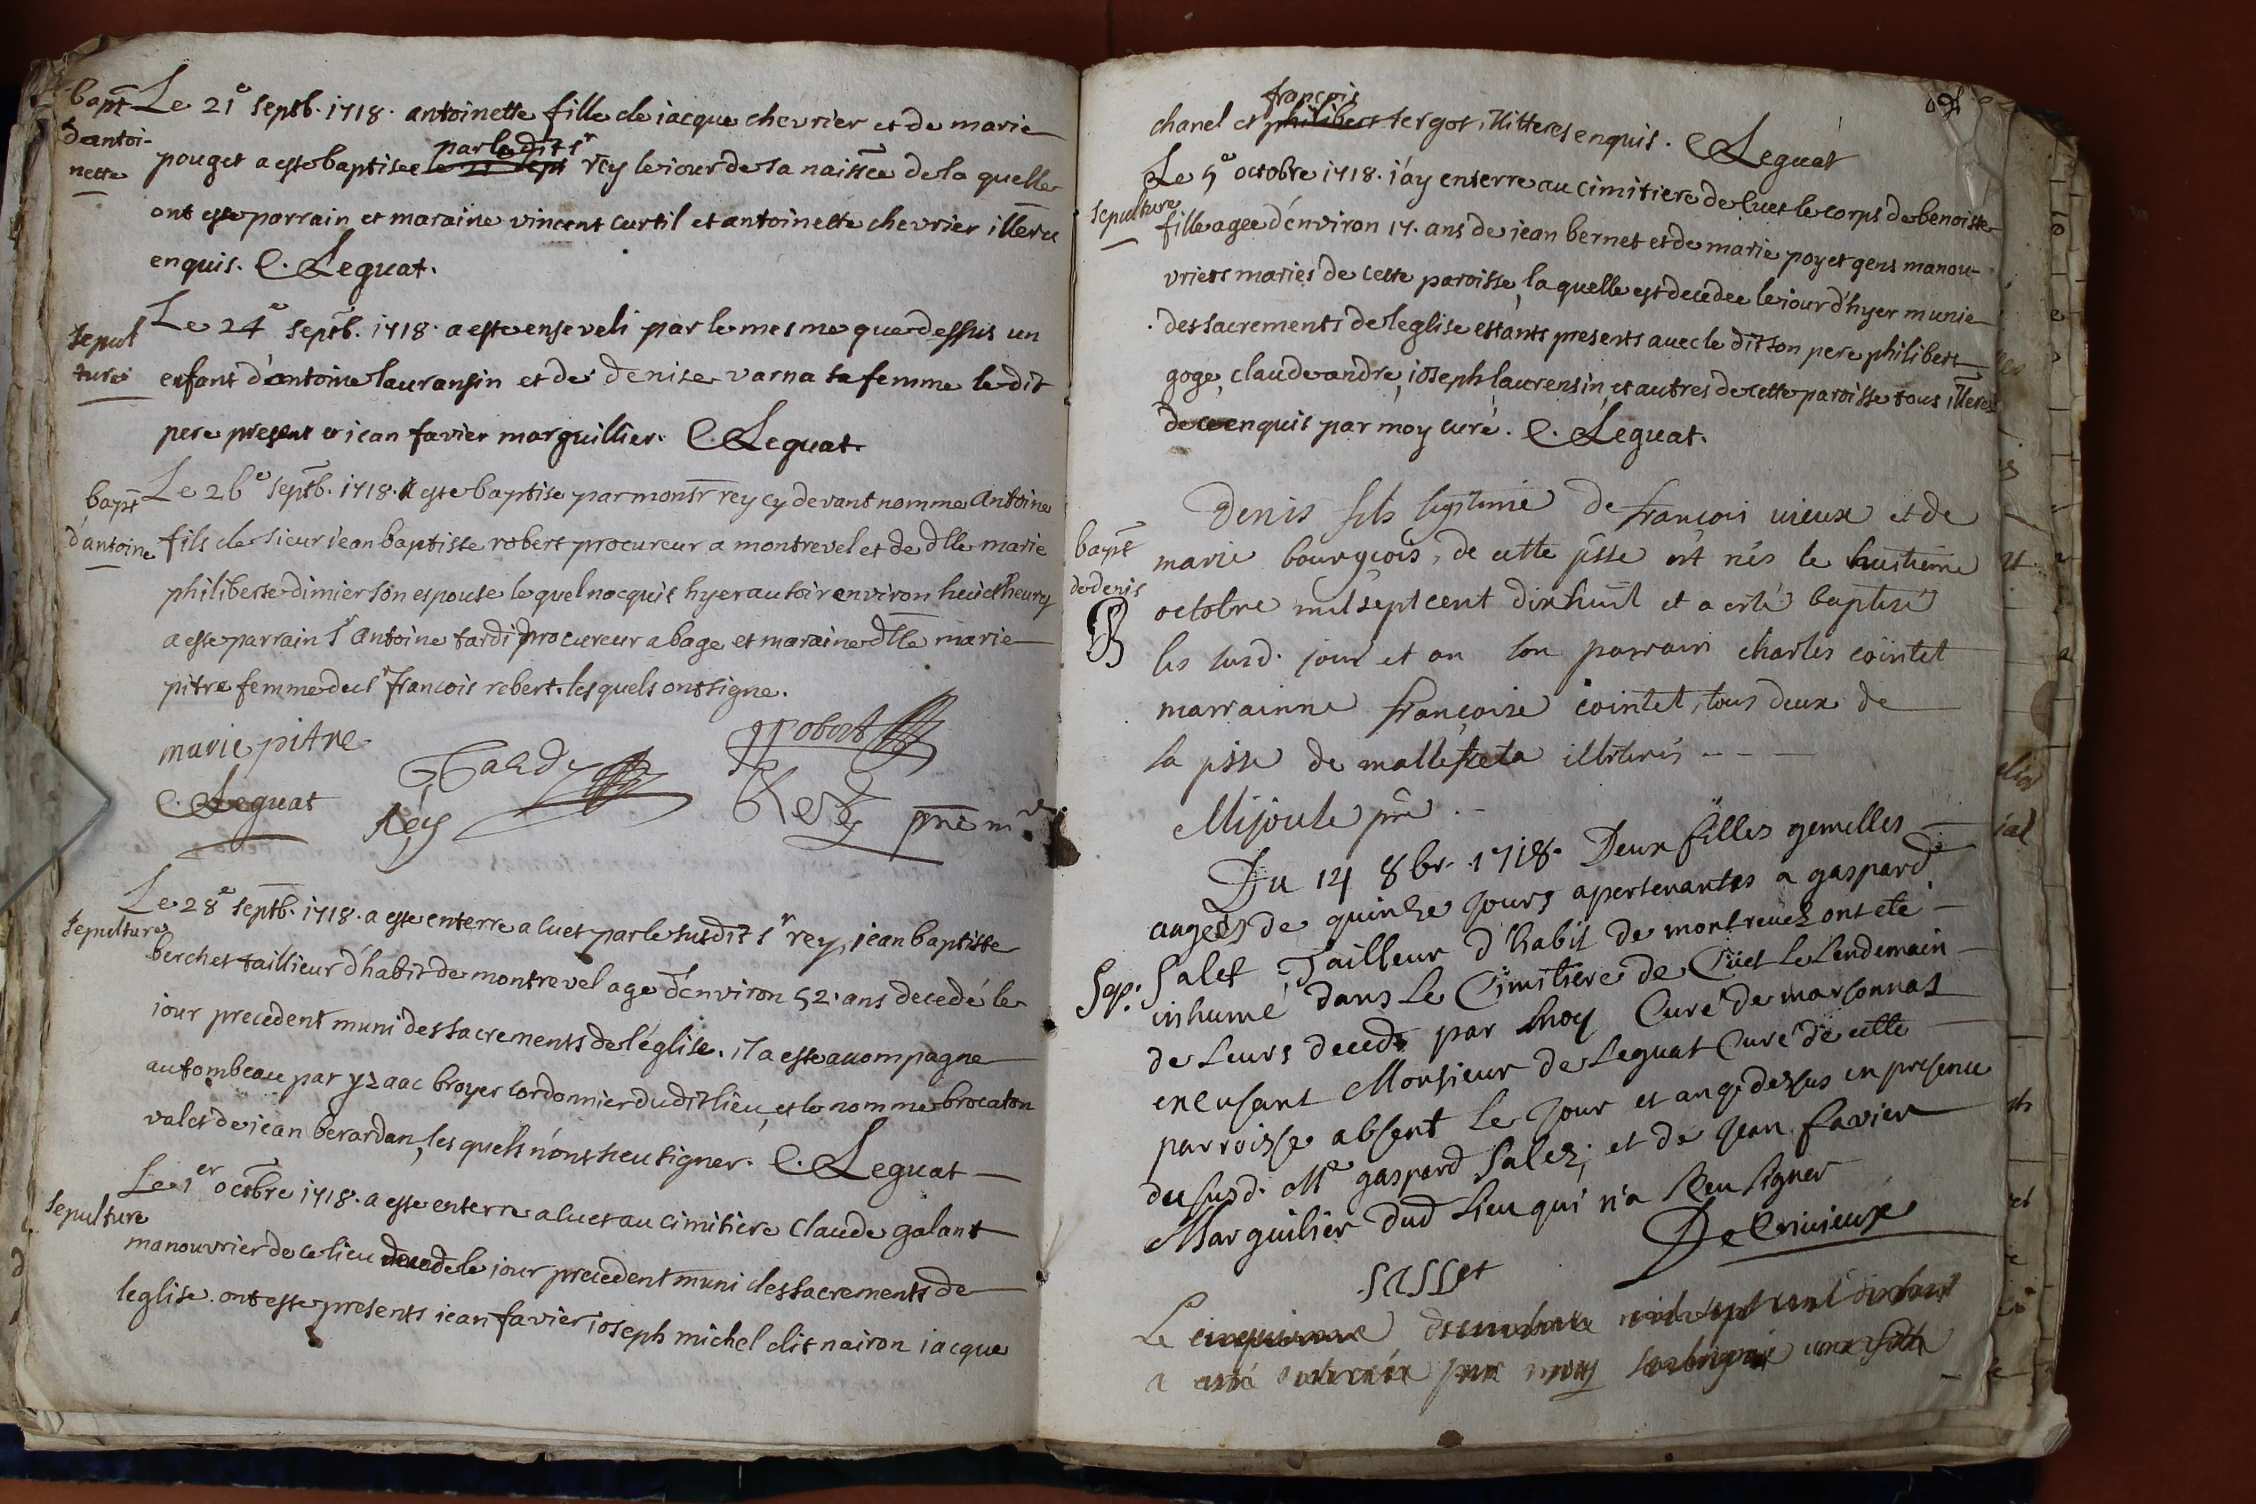 bapt
d'antoi-
nette
Le 21e septb. 1718. antoinette fille de iacque chevrier et de marie
pouget a este baptisee le 21 sept par le dit sr rey le iour de sa naissce de la quelle
ont este parrain et maraine vincent curtil et antoinette chevrier illeres
enquis. C. Leguat.
sepul
ture
Le 24e septb. 1718. a este enseveli par le mesme que dessus un
enfant d'antoine lauransin et de denise varna sa femme le dit
pere present et iean favier marguillier. C. Leguat.
bapt
d'antoine
Le 26e septb. 1718. a este baptise par monsr rey cy devant nomme antoine
fils de sieur iean baptiste robert procureur a montrevel et de dlle marie
philiberte dimier son espouse le quel nacquit hyer au soir environ heuict heures
a este parrain sr antoine tardi procureur a bage et maraine dlle marie
pitre femme du sr francois robert. les quels ont signe.
marie pitre
Tardy
Robert
C. Leguat
Rey
sepultures
Le 28e septb. 1718. a este enterre a cuet par le susdit sr rey, iean baptiste
berchet taillieur d'habit de montrevel age d'environ 52. ans decedé le
iour precedent muni des sacrements de l'église. il a este accompagne
au tombeau par yzaac broyer cordonnier du dit lieu, et le nomme brocaton
valet de iean berardan, les quels n'ont sceu signer. C. Leguat
sepulture
Le 1er octbre 1718. a este enterre a cuet au cimitiere Claude galant
manouvrier de ce lieu decede le iour precedent muni des sacrements de
leglise. ont este presents iean favier ioseph michel dit nairon iacque
chanel et philibert françois tergot, illiteres enquis. C. Leguat
sepulture
Le 5e octobre 1718. i'ay enterre au cimitiere de cuet le corps de benoiste
fille agee d'environ 17. ans de iean bernet et de marie poyet gens manou-
vriers mariés de cette paroisse, la quelle est decedee le iour d'hyer munie
des sacrements de leglise estants presents avec le dit son pere philibert
goge, claude andre, ioseph laurensin, et autres de cette paroisse tous illeres
de ce enquis par moy curé. C. Leguat.
bapt
de denis
Denis fils legitime de francois vieux et de
marie bourgeois, de cette psse est nés le huitieme
octobre mil sept cent dix huit et a esté baptisé
les susd. jour et an son parrain charles cointet
marrainne françoise cointet, tous deux de
la psse de mallefreta illiterés - - -
Mijoule ptre
Sep.
Du 14 8br. 1718. Deux filles gemelles
angées de quinze jours apertenantes a gaspard
Salet Tailleur d'habit de montrevel ont été
inhumé dans Le Cimitiere de Cüet Le Lendemain
de Leurs decedz par moy Curé de marsonnas
en Lusant Monsieur de Leguat Curé de cette
parroisse absent Le jour et an q. dessus en presence
du susd. Mre gaspard Salez, et de jean favier
Marguilier dud Lieu qui n'a sceu signer
De Crivieux
SALLET
Le
a esté enterrée par moy